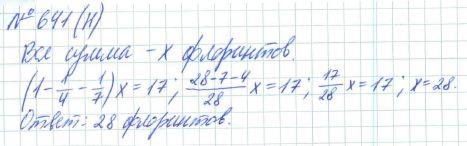 № 641 (н)
Вся сумма – x флоринтов.
(1 - 1/4 - 1/7) x = 17; (28-7-4)/28 x = 17; 17/28 x = 17; x = 28.
Ответ: 28 флоринтов.